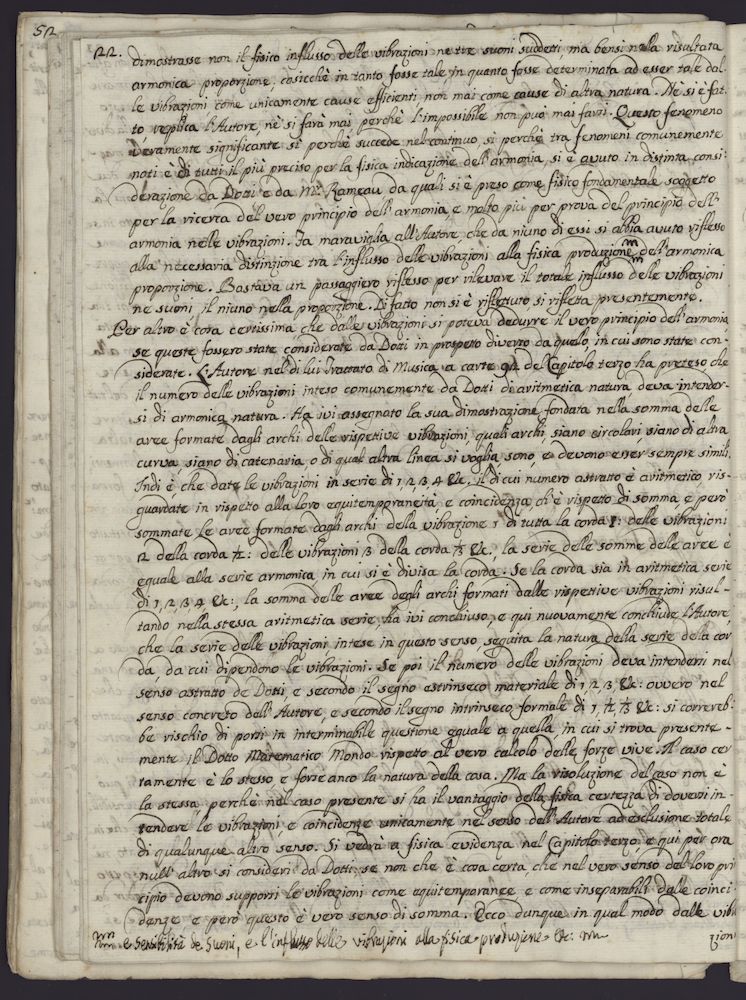 52
22. dimostrasse non il fisico influsso delle vibrazioni ne tre suoni suddetti ma bensì nella risultata
armonica proporzione, cosicchè in tanto fosse tale, in quanto fosse determinata ad esser tale dal-
le vibrazioni come unicamente cause efficienti non mai come cause di altra natura. Ne si è fat-
to, replica l'Autore, nè si farà mai perchè l'impossibile non può mai farsi. Questo fenomeno
veramente significante sì perchè succede nel continuo, sì perchè tra fenomeni comunemente
noti è di tutti il più preciso per la fisica indicazione dell'armonia, si è avuto in distinta consi-
derazione da Dotti e da Mr. Rameau da quali si è preso come fisico fondamentale soggetto
per la ricerca del vero principio dell'armonia, e molto più per prova del principio dell'
armonia nelle vibrazioni. Fa maraviglia all'Autore che da niuno di essi si abbia avuto riflesso
alla necessaria distinzione tra l'influsso delle vibrazioni alla fisica produzione dell'armonica
proporzione. Bastava un passaggiero riflesso per rilevare il totale influsso delle vibrazioni
ne suoni, il niuno nella proporzione. Di fatto non si è riflettuto si rifletta presentemente.
Per altro è cosa certissima che dalle vibrazioni si poteva dedurre il vero principio dell'armonia,
se queste fossero state considerate da Dotti in prospeto diverso da quello, in cui sono state con-
siderate. L'Autore nel di lui Trattato di Musica a carte del Capitolo terzo ha preteso che
il numero delle vibrazioni inteso comunemente da Dotti di aritmetica natura deva intender-
si di armonica natura. Ha ivi assegnato la sua dimostrazione fondata nella somma delle
aree formate dagli archi delle rispetive vibrazioni, quali archi, siano circolari siano di altra
curva, siano di catenaria, o di qual altra linea si voglia, sono, e devono esser sempre simili.
Indi è, che date le vibrazioni in serie di 1, 2, 3, 4 &c., il di cui numero astratto è aritmetico, ris-
guardate in rispetto alla loro equitemporaneità, e coincidenza, ch'è rispetto di somma, e però
sommate le aree formate dagli archi della vibrazione 1 di tutta la corda 1: delle vibrazioni
2 della corda 1/2: delle vibrazioni 3 della corda 1/3 &c., la serie delle somme delle aree è
eguale alla serie armonica, in cui si è divisa la corda. Se la corda sia in aritmetica serie
di 1, 2, 3, 4 &c:, la somma delle aree degli archi formati dalle rispettive vibrazioni risul-
tando nella stessa aritmetica serie, ha ivi conchiuso, e qui nuovamente conchiude l'Autore,
che la serie delle vibrazioni intese in questo senso, seguita la natura della serie della cor
da, da cui dipendono le vibrazioni. Se poi il numero delle vibrazioni deva intendersi nel
senso astratto de Dotti, e secondo il segno estrinseco materiale di 1, 2, 3, &c: ovvero nel
senso concreto dell'Autore, e secondo il segno intrinseco formale di 1, 1/2, 1/3 &c: si correreb-
be rischio di porsi in interminabile questione eguale a quella, in cui si trova presente-
mente il Dotto Matematico Mondo rispetto al vero calcolo delle forze vive. Il caso cer
tamente è lo stesso e forse anco la natura della cosa. Ma la risoluzione del caso non è
la stessa, perchè nel caso presente si ha il vantaggio della fisica certezza di doversi in-
tendere le vibrazioni e coincidenze unitamente nel senso dell'Autore ad esclusione totale
di qualunque altro senso. Si vedrà a fisica evidenza nel Capitolo terzo: e qui per ora
null'altro si consideri da Dotti, se non che è cosa certa, che nel vero senso del loro prin
cipio devono supporsi le vibrazioni come equitemporanee e come inseparabili dalle coinci
denze e però questo è vero senso di somma. Ecco dunque in qual modo dalle vibra
zioni
e sensibilità de Suoni, e l'influsso delle vibrazioni alla fisica produzione &c: